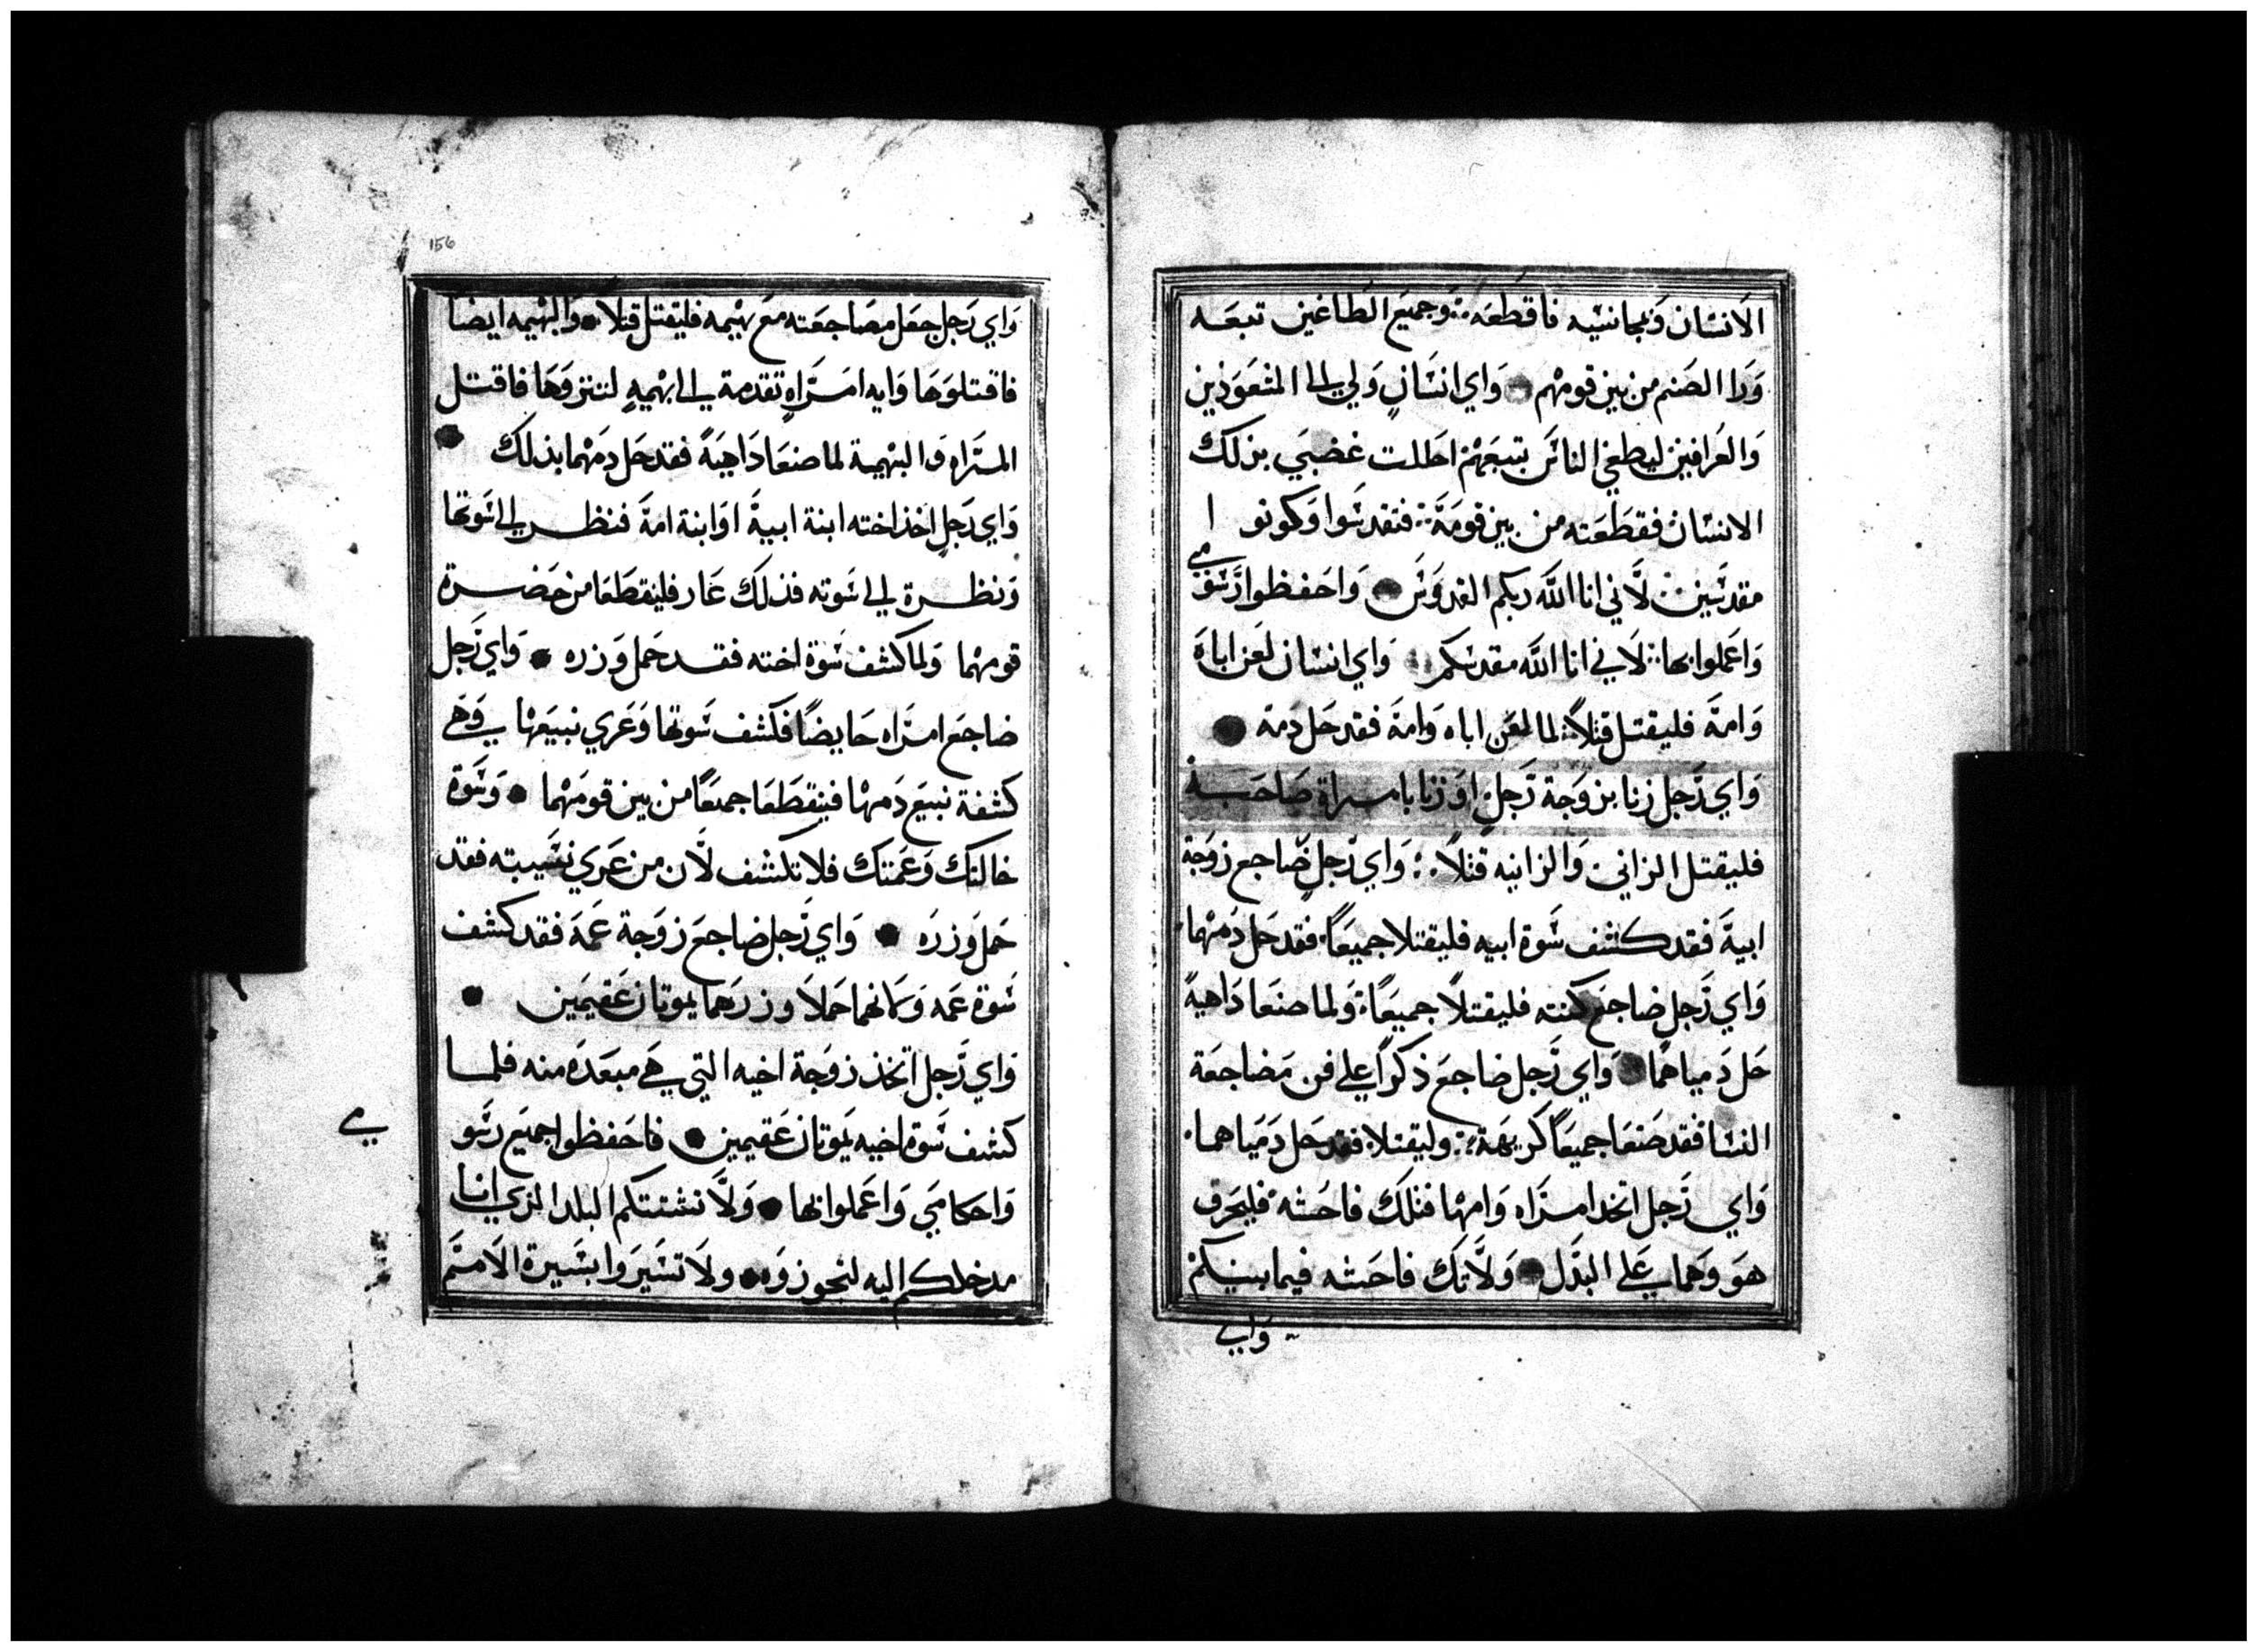 الانسان وبجانسيه فاقطعه وجميع الطاغين تبعه
ورا الصنم من بين قومهم واي انسان ولي الى المتعوذين
والعرافين ليطغي الناس بتبعهم احللت غضبي بذلك
الانسان فقطعته من بين قومة فتقدسوا وكونوا
مقدسين لاني انا الله ربكم القدوس واحفظوا رسومي
واعملوا بها لاني انا الله مقدسكم واي انسان لعن اباة
وامة فليقتل قتلاً لما لعن اباه وامة فقد حل دمة
واي رجل زنا بزوجة رجل او زنا بامراة صاحبه
فليقتل الزاني والزانيه قتلاً واي رجل ضاجع زوجة
ابية فقد كشف سوة ابيه فليقتلا جميعاً فقد حل دمهما
واي رجل ضاجع كنته فليقتلا جميعاً ولما صنعا داهيةً
حل دمياهما واي رجل ضاجع ذكراً على فن مضاجعة
النسا فقد صنعا جميعاً كريهة وليقتلا فقد حل دمياهما
واي رجل اتخد امراه وامها فتلك فاحشه فليحرق
هو وهما على البدل ولا تك فاحشه فيما بينكم
واي
156
واي رجل جعل مضاجعته مع بهيمه فليقتل قتلاً والبهيمه ايضاً
فاقتلوها وايه امراه تقدمة الى بهيمهٍ لتنزوها فاقتل
المراه والبهيمة لما صنعا داهيةً فقد حل دمهما بذلك
واي رجل اخذ اخته ابنة ابية او ابنة امة فنظر الى سوتها
ونظرة الى سوته فذلك عار فلينقطعا من حضرة
قومهما ولما كشف سوة اخته فقد حمل وزره واي رجل
ضاجع امراه حايضاً فكشف سوتها وعري نبيعها وهي
كشفة نبيع دمها فينقطعا جميعاً من بين قومهما وسوة
خالتك وعمتك فلا تكشف لان من عري نسيبته فقد
حمل وزره واي رجل ضاجع زوجة عمة فقد كشف
سوة عمه وكانهما حملا وزرهما يموتان عقيمين
واي رجل اتخذ زوجة اخيه التي هي مبعده منه فلما
كشف سوة اخيه يموتان عقيمين فاحفظوا جميع رسو
مي
واحكامي واعملوا بها ولا تشتتكم البلد الذي انا
مدخلكم اليه لتحوزوه ولا تسيروا بسيرة الامم